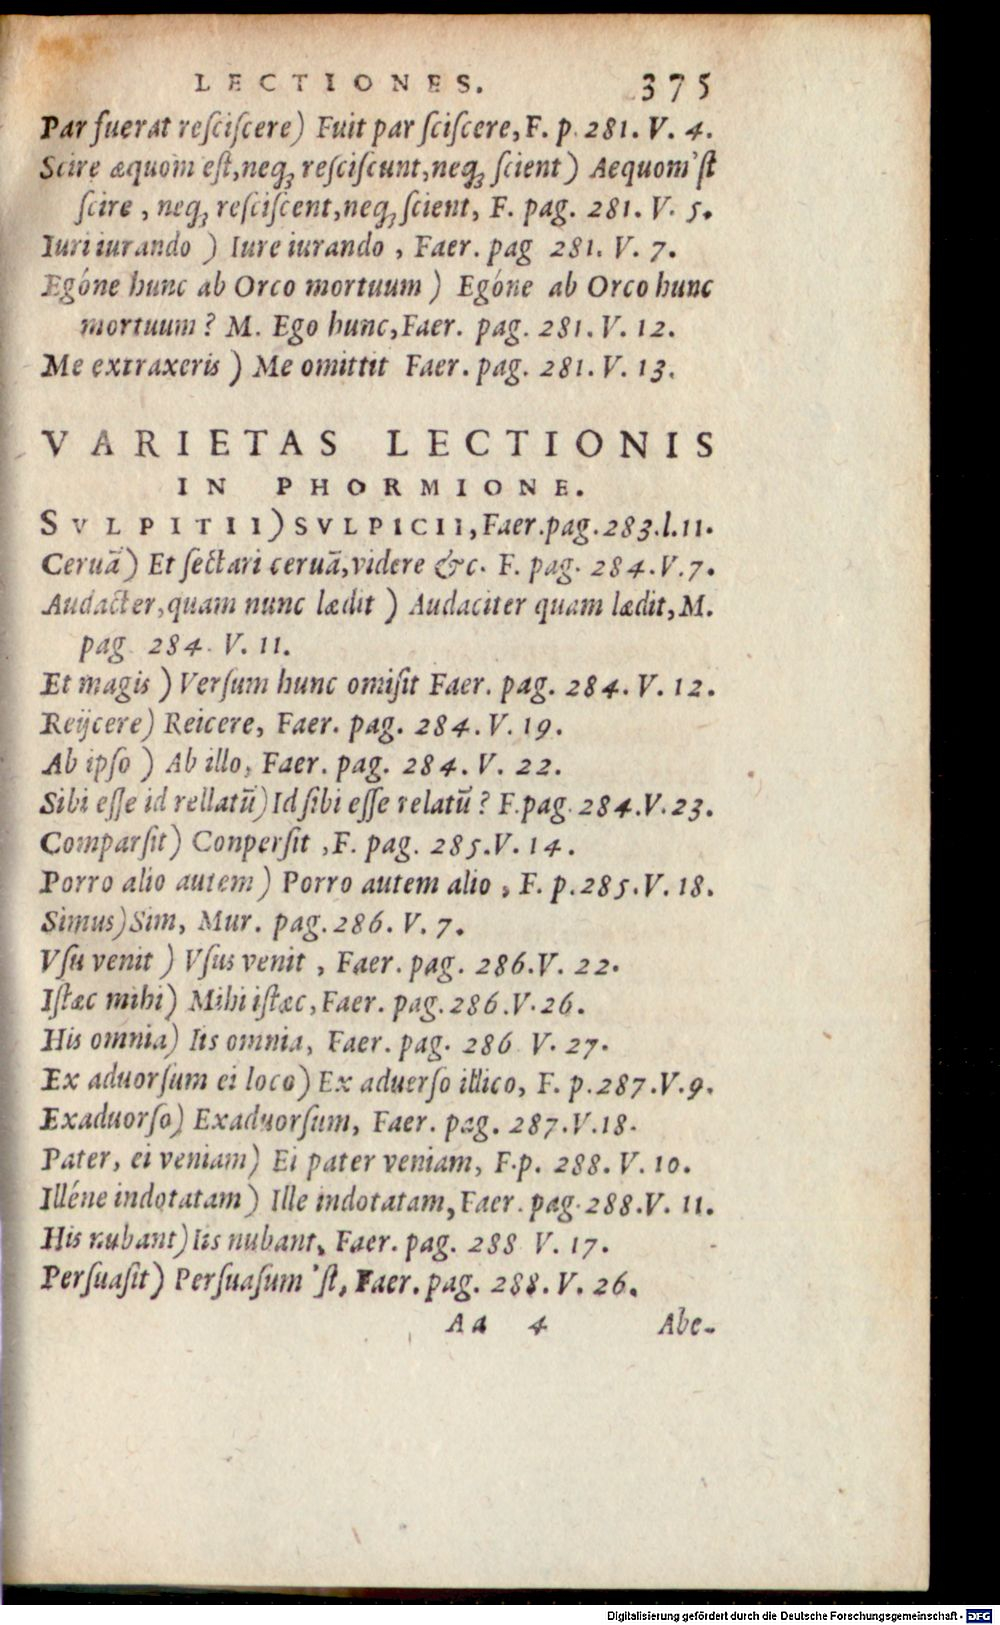 LECTIONES. 375
Par fuerat reſciſcere) Fuit par ſciſcere, F. p. 281. V. 4.
Scire æquom eſt, neq; reſciſcunt, neq; ſcient) Aequom'ſt
ſcire, neq; reſciſcent, neq; ſcient, F. pag. 281. V. 5.
Iuri iurando) Iure iurando, Faer. pag 281. V. 7.
Egóne hunc ab Orco mortuum) Egóne ab Orco hunc
mortuum? M. Ego hunc, Faer. pag. 281. V. 12.
Me extraxeris) Me omittit Faer. pag. 281. V. 13.
VARIETAS LECTIONIS
IN PHORMIONE.
SVLPITII) SVLPICII, Faer. pag. 283. l. 11.
Ceruā) Et ſectari ceruā, videre &c. F. pag. 284. V. 7.
Audacter, quam nunc lædit) Audaciter quam lædit, M.
pag. 284. V. 11.
Et magis) Verſum hunc omiſit Faer. pag. 284. V. 12.
Reijcere) Reicere, Faer. pag. 284. V. 19.
Ab ipſo) Ab illo, Faer. pag. 284. V. 22.
Sibi eſſe id rellatū) Id ſibi eſſe relatū? F. pag. 284. V. 23.
Comparſit) Conperſit, F. pag. 285. V. 14.
Porro alio autem) Porro autem alio, F. p. 285. V. 18.
Simus) Sim, Mur. pag. 286. V. 7.
Vſu venit) Vſus venit, Faer. pag. 286. V. 22.
Iſtæc mihi) Mihi iſtæc, Faer. pag. 286. V. 26.
His omnia) Iis omnia, Faer. pag. 286 V. 27.
Ex aduorſum ei loco) Ex aduerſo illico, F. p. 287. V. 9.
Exaduorſo) Exaduorſum, Faer. pag. 287. V. 18.
Pater, ei veniam) Ei pater veniam, F. p. 288. V. 10.
Illéne indotatam) Ille indotatam, Faer. pag. 288. V. 11.
His nubant) Iis nubant, Faer. pag. 288 V. 17.
Perſuaſit) Perſuaſum'ſt, Faer. pag. 288. V. 26.
Aa 4 Abe-
Digitalisierung gefördert durch die Deutsche Forschungsgemeinschaft - DFG